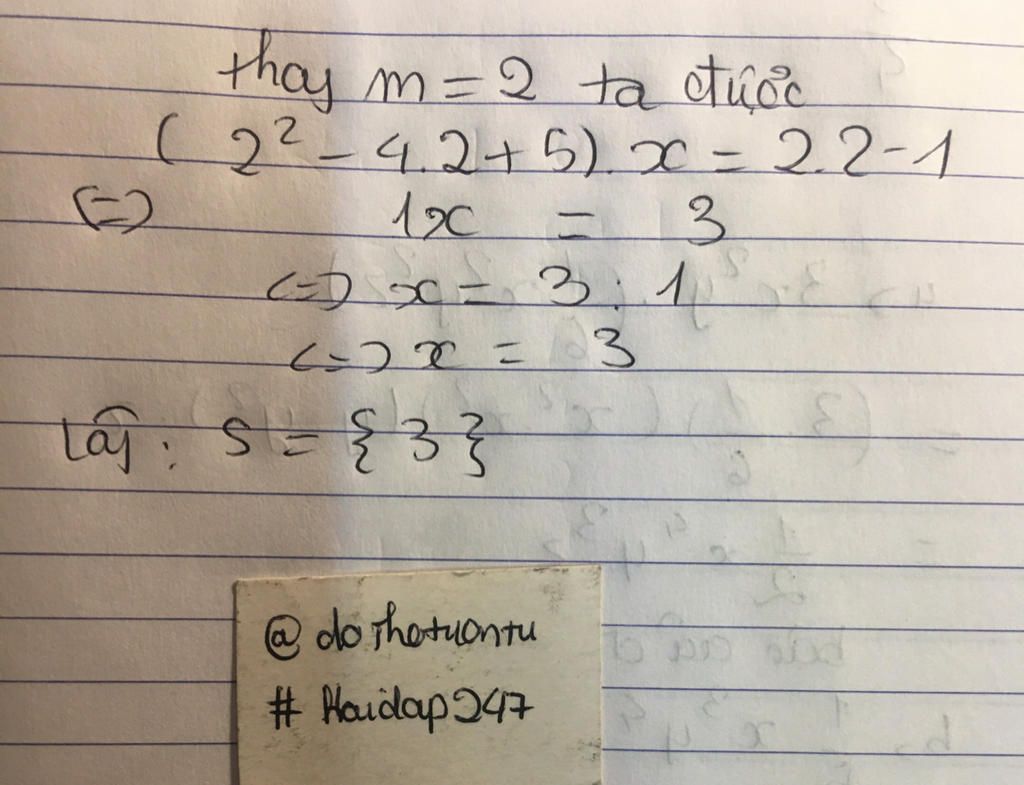 thay m = 2 ta được
( 2² - 4.2 + 5). x = 2.2 - 1
(=) 1x = 3
<=> x = 3 : 1
<=> x = 3
Vậy : S = { 3 }
@ dothetuontu
# Hoidap247